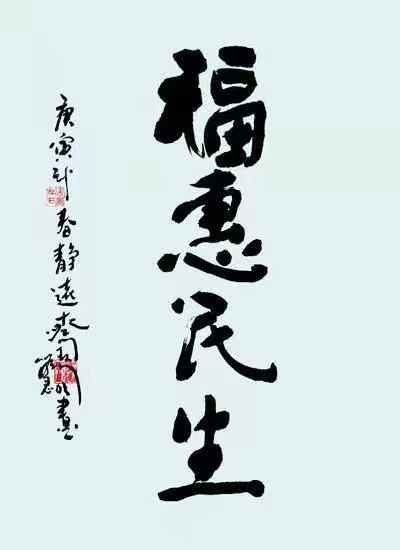 福惠民生
庚寅 春静远斋 书